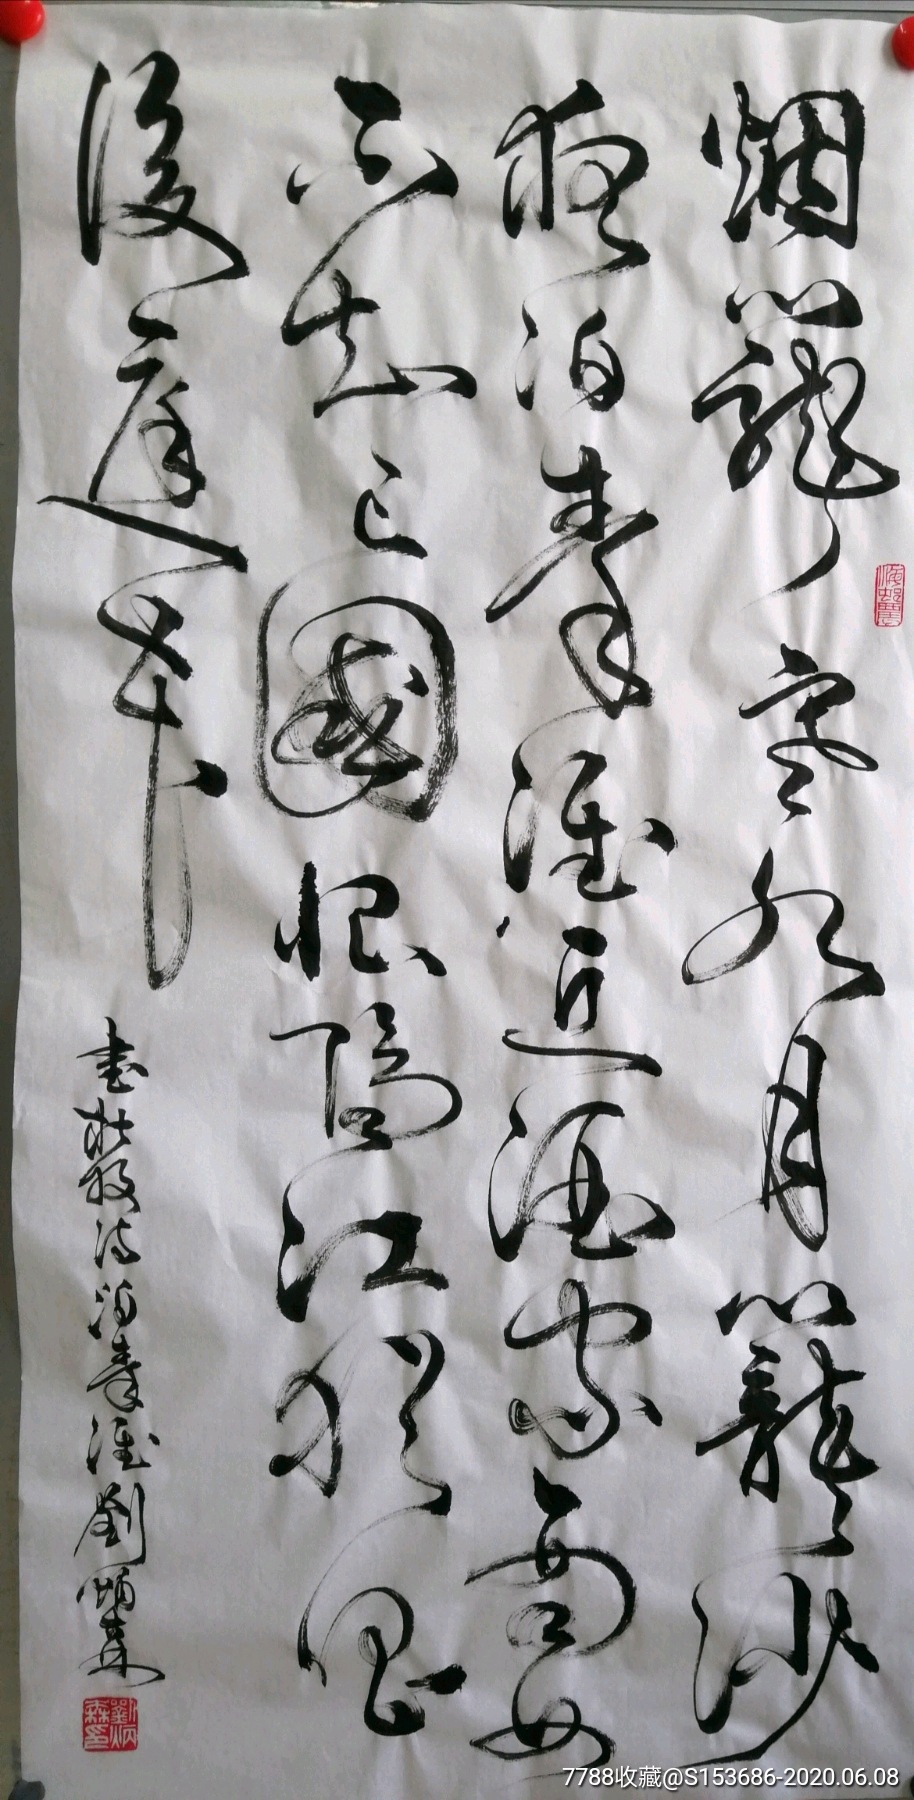 烟籠寒水月籠沙
夜泊秦淮近酒家商女
不知亡國恨隔江猶唱
後庭花
書杜牧诗泊秦淮劉炳森
劉炳森印
7788收藏@S153686-2020.06.08